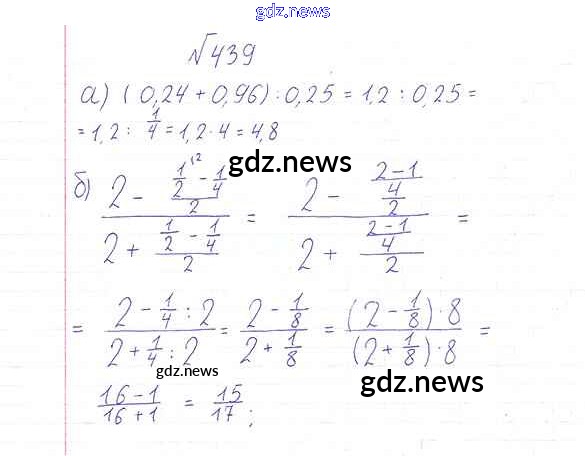 gdz.news
№439
а) (0,24 + 0,96) : 0,25 = 1,2 : 0,25 =
= 1,2 : 1/4 = 1,2 · 4 = 4,8
gdz.news
б) (2 - (1/2 - 1/4)/2)/(2 + (1/2 - 1/4)/2) = (2 - ((2-1)/4)/2)/(2 + ((2-1)/4)/2) =
= (2 - 1/4 : 2)/(2 + 1/4 : 2) = (2 - 1/8)/(2 + 1/8) = ((2 - 1/8) · 8)/((2 + 1/8) · 8) =
gdz.news
gdz.news
(16 - 1)/(16 + 1) = 15/17;